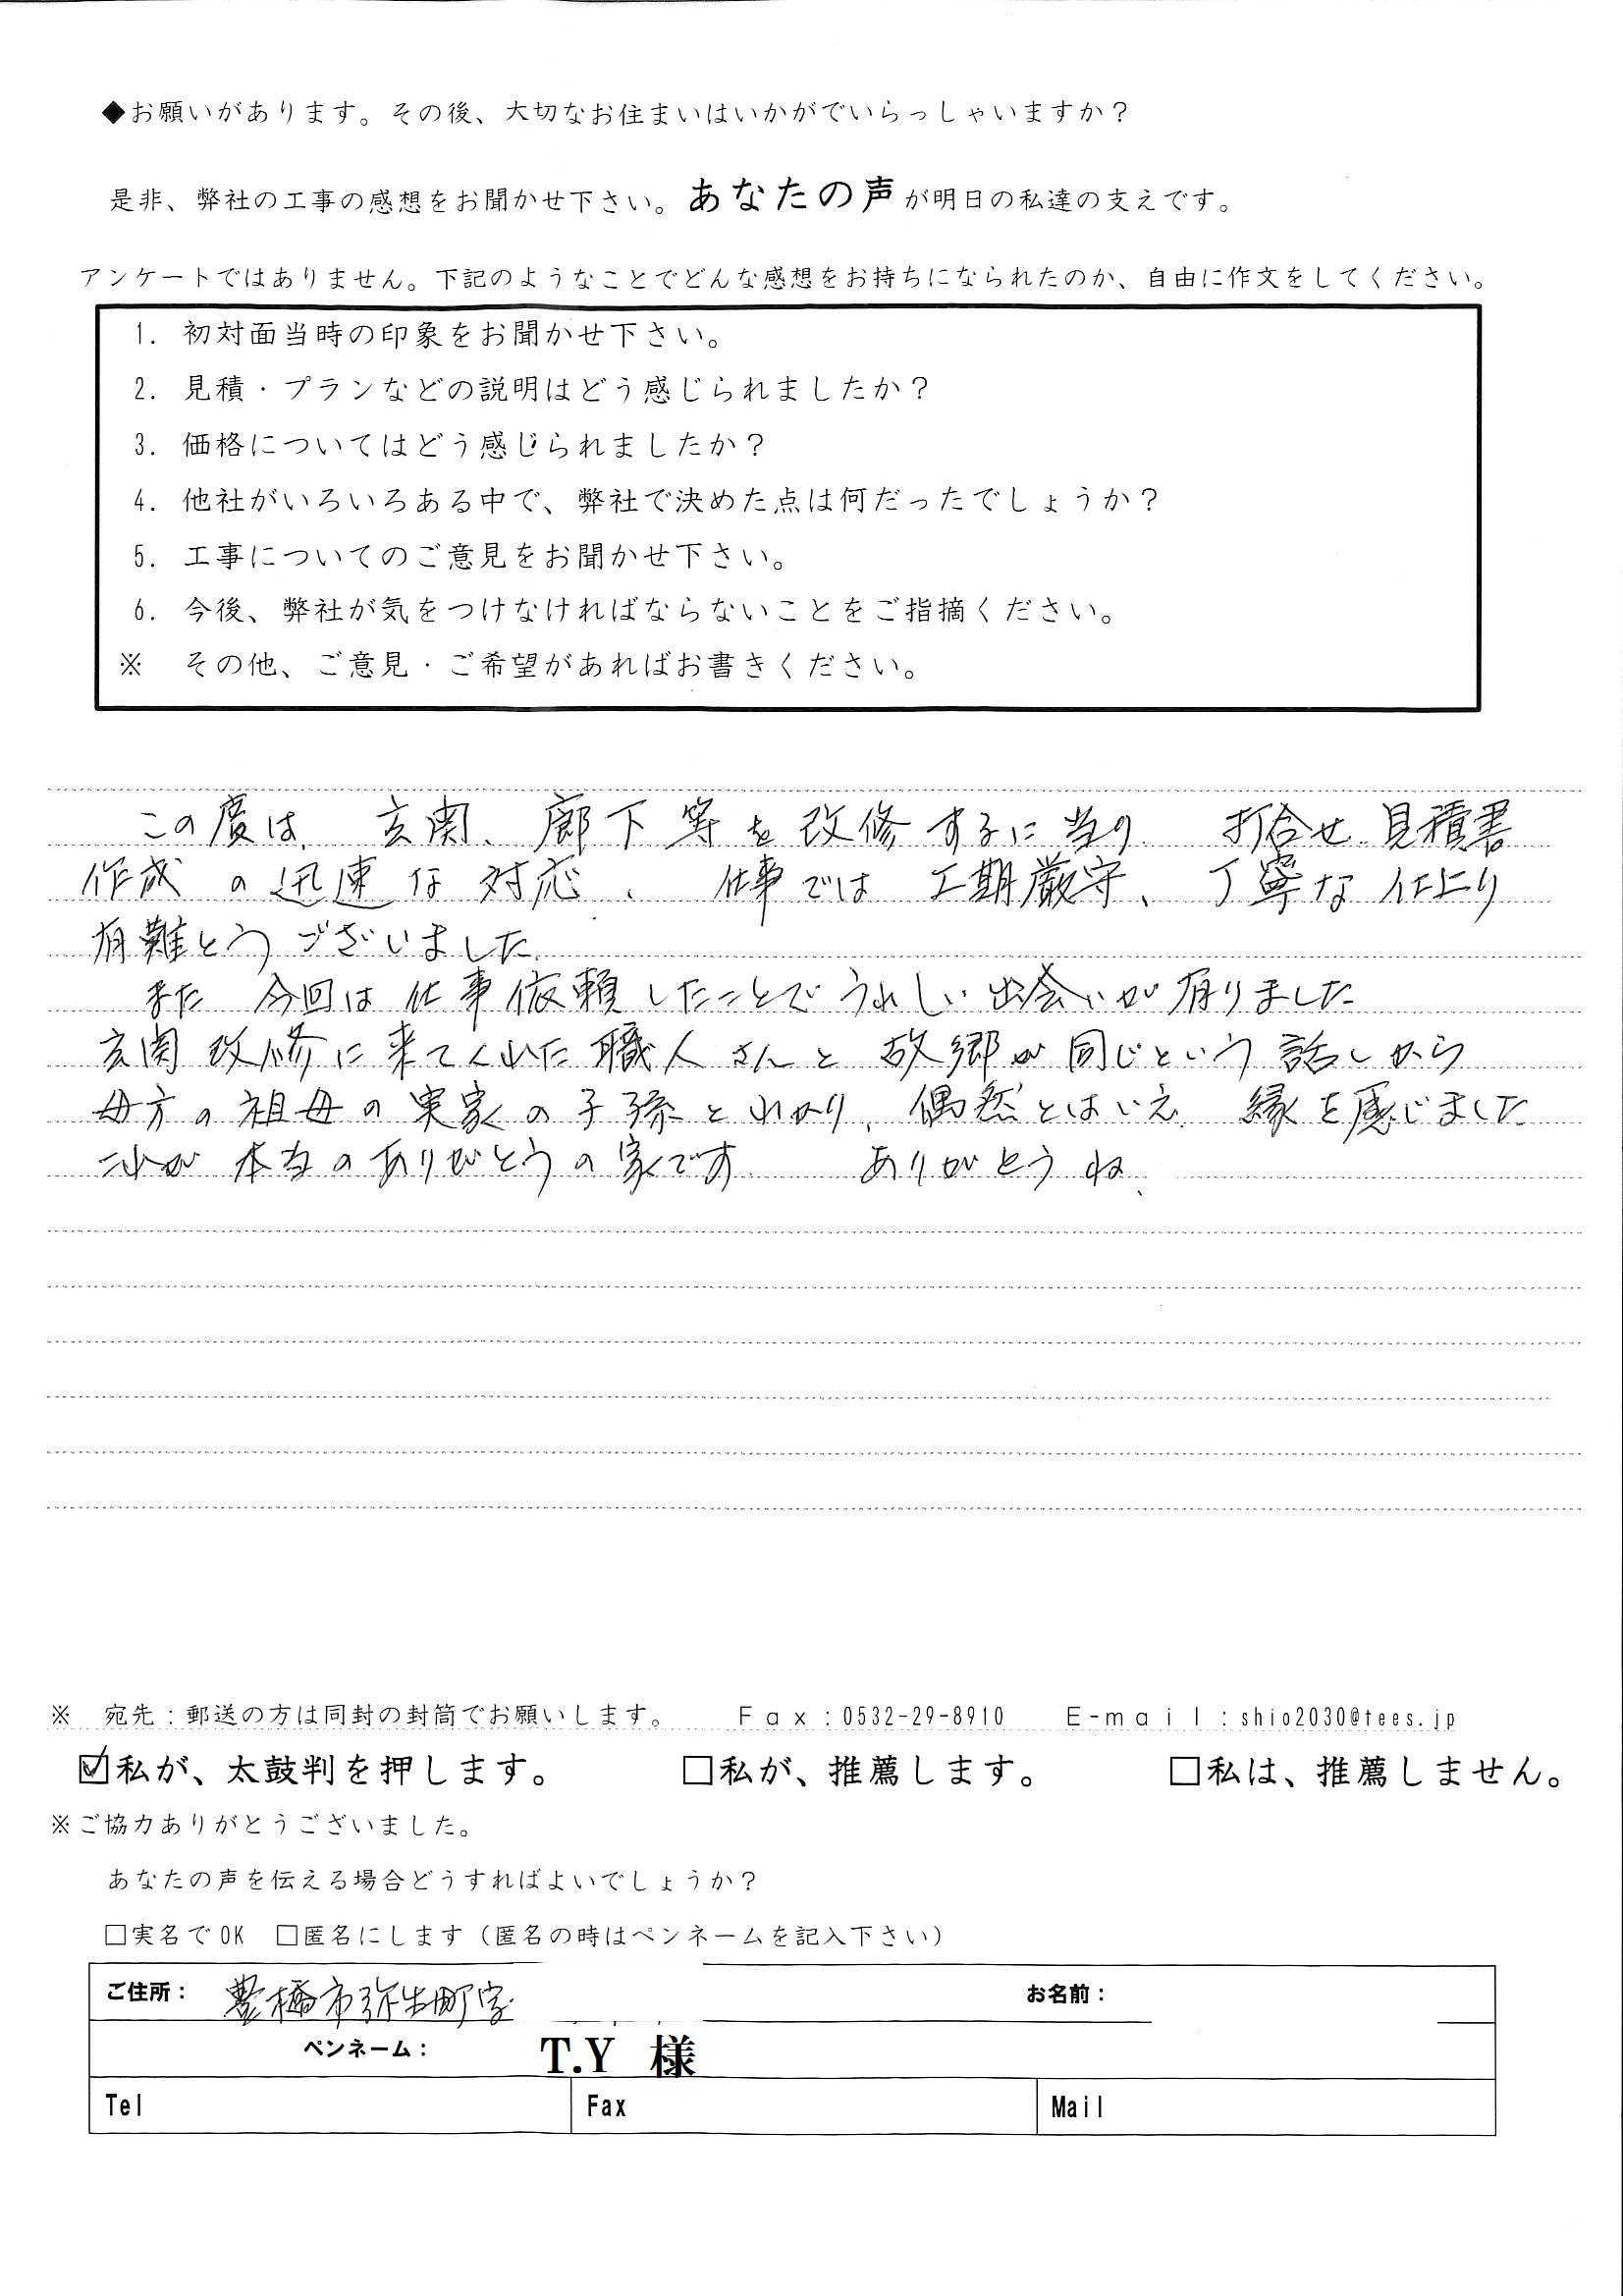 ◆お願いがあります。その後、大切なお住まいはいかがでいらっしゃいますか？
是非、弊社の工事の感想をお聞かせ下さい。あなたの声が明日の私達の支えです。
アンケートではありません。下記のようなことでどんな感想をお持ちになられたのか、自由に作文をしてください。
1. 初対面当時の印象をお聞かせ下さい。
2. 見積・プランなどの説明はどう感じられましたか？
3. 価格についてはどう感じられましたか？
4. 他社がいろいろある中で、弊社で決めた点は何だったでしょうか？
5. 工事についてのご意見をお聞かせ下さい。
6. 今後、弊社が気をつけなければならないことをご指摘ください。
※　その他、ご意見・ご希望があればお書きください。
この度は、玄関、廊下等を改修するに当り　打合せ、見積書
作成の迅速な対応、仕事では工期厳守、丁寧な仕上り
有難とうございました。
また　今回は仕事依頼したことでうれしい出会いが有りました
玄関改修に来てくれた職人さんと　故郷が同じという話しから
母方の祖母の実家の子孫とわかり、偶然とはいえ、縁を感じました
これが本当のありがとうの家です　ありがとうね、
※　宛先：郵送の方は同封の封筒でお願いします。　Fax：0532-29-8910　E-mail：shio2030@tees.jp
☑私が、太鼓判を押します。　□私が、推薦します。　□私は、推薦しません。
※ご協力ありがとうございました。
あなたの声を伝える場合どうすればよいでしょうか？
□実名でOK　□匿名にします（匿名の時はペンネームを記入下さい）
ご住所：　豊橋市弥生町字　お名前：
ペンネーム：　T.Y　様
Tel　Fax　Mail